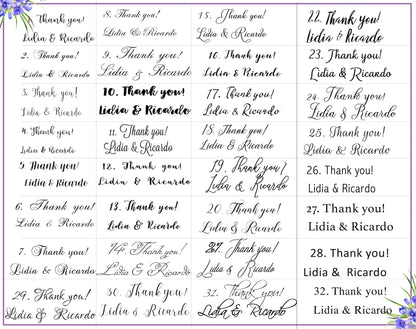 Thank you!
Lidia & Ricardo
2. Thank you!
Lidia & Ricardo
3. Thank you!
Lidia & Ricardo
4. Thank you!
Lidia & Ricardo
5 Thank you!
Lidia & Ricardo
6. Thank you!
Lidia & Ricardo
7. Thank you!
Lidia & Ricardo
29. Thank you!
Lidia & Ricardo
8. Thank you!
Lidia & Ricardo
9. Thank you!
Lidia & Ricardo
10. Thank you!
Lidia & Ricardo
11. Thank you!
Lidia & Ricardo
12. Thank you!
Lidia & Ricardo
13. Thank you!
Lidia & Ricardo
14. Thank you!
Lidia & Ricardo
30. Thank you!
Lidia & Ricardo
15. Thank you!
Lidia & Ricardo
16. Thank you!
Lidia & Ricardo
17. Thank you!
Lidia & Ricardo
18. Thank you!
Lidia & Ricardo
19. Thank you!
Lidia & Ricardo
20. Thank you!
Lidia & Ricardo
Thank you!
Lidia & Ricardo
31. Thank you!
Lidia & Ricardo
22. Thank you!
Lidia & Ricardo
23. Thank you!
Lidia & Ricardo
24. Thank you!
Lidia & Ricardo
25. Thank you!
Lidia & Ricardo
26. Thank you!
Lidia & Ricardo
27. Thank you!
Lidia & Ricardo
28. Thank you!
Lidia & Ricardo
32. Thank you!
Lidia & Ricardo